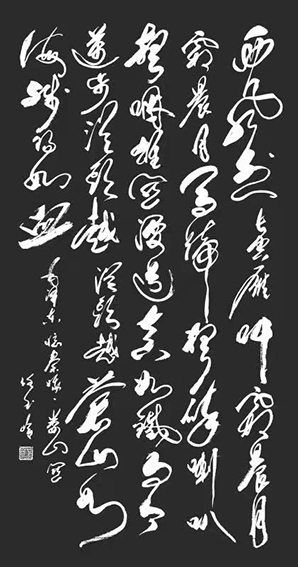 西风烈长空雁叫霜晨月
霜晨月马蹄声碎喇叭
声咽雄关漫道真如铁而今
迈步从头越从头越苍山如
海残阳如血
毛泽东忆秦娥·娄山关